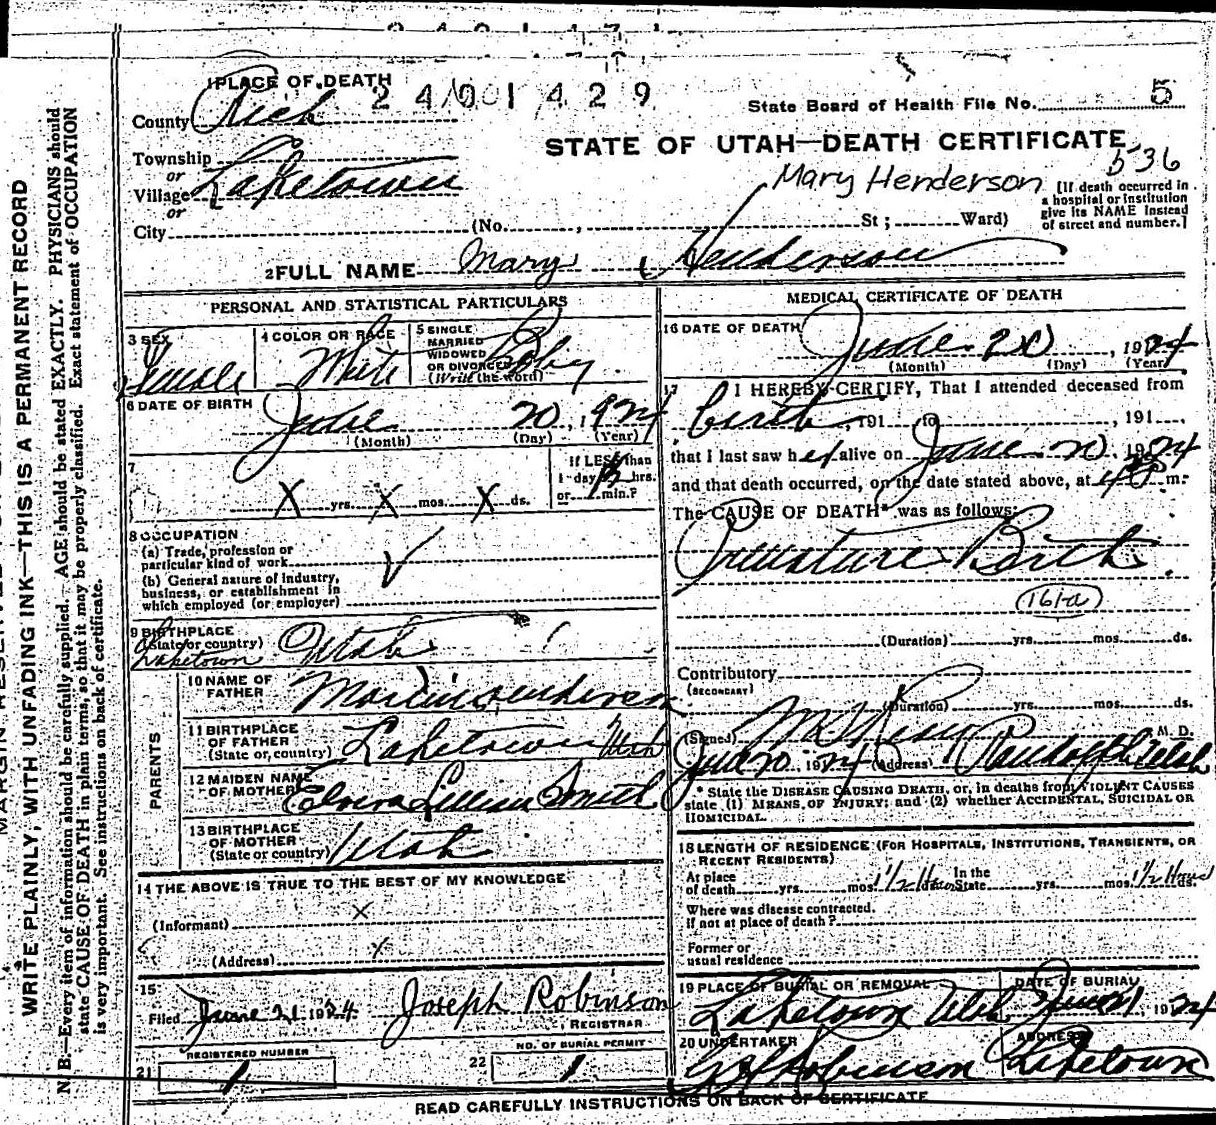 1 PLACE OF DEATH
2401429
State Board of Health File No. 5
County Rich
STATE OF UTAH—DEATH CERTIFICATE
536
Township
or
Village Laketown
or
City (No. , St; Ward)
Mary Henderson
[If death occurred in
a hospital or institution
give its NAME instead
of street and number.]
2 FULL NAME Mary Henderson
PERSONAL AND STATISTICAL PARTICULARS
3 SEX
Female
4 COLOR OR RACE
White
5 SINGLE
MARRIED
WIDOWED
OR DIVORCED
(Write the word)
Baby
6 DATE OF BIRTH
June 20, 1924
(Month) (Day) (Year)
7
X yrs. X mos. X ds.
If LESS than
1 day hrs.
or min.?
8 OCCUPATION
(a) Trade, profession or
particular kind of work
(b) General nature of industry,
business, or establishment in
which employed (or employer)
9 BIRTHPLACE
(State or country)
Laketown Utah
PARENTS
10 NAME OF
FATHER
Martin Henderson
11 BIRTHPLACE
OF FATHER
(State or country)
Laketown Utah
12 MAIDEN NAME
OF MOTHER
Elvera Lillian Smith
13 BIRTHPLACE
OF MOTHER
(State or country)
Utah
14 THE ABOVE IS TRUE TO THE BEST OF MY KNOWLEDGE
(Informant) X
(Address) X
15
Filed June 21 1924 Joseph Robinson
REGISTRAR
REGISTERED NUMBER
21 1
NO. OF BURIAL PERMIT
22 1
MEDICAL CERTIFICATE OF DEATH
16 DATE OF DEATH
June 20, 1924
(Month) (Day) (Year)
17 I HEREBY CERTIFY, That I attended deceased from
birth, 191 to , 191
that I last saw her alive on June 20 1924
and that death occurred, on the date stated above, at m.
The CAUSE OF DEATH* was as follows:
Premature Birth
161-a
(Duration) yrs. mos. ds.
Contributory
(SECONDARY)
(Duration) yrs. mos. ds.
(Signed) M. D.
Jun 20, 1924 (Address) Randolph Utah
* State the DISEASE CAUSING DEATH, or, in deaths from VIOLENT CAUSES
state (1) MEANS OF INJURY; and (2) whether ACCIDENTAL, SUICIDAL OR
HOMICIDAL.
18 LENGTH OF RESIDENCE (FOR HOSPITALS, INSTITUTIONS, TRANSIENTS, OR
RECENT RESIDENTS)
At place In the
of death yrs. mos. 1 1/2 Hours State yrs. mos. 1 1/2 Hours ds.
Where was disease contracted.
if not at place of death?
Former or
usual residence
19 PLACE OF BURIAL OR REMOVAL
Laketown Utah
DATE OF BURIAL
June 21, 1924
20 UNDERTAKER
Robinson
ADDRESS
Laketown
READ CAREFULLY INSTRUCTIONS ON BACK OF CERTIFICATE
WRITE PLAINLY, WITH UNFADING INK—THIS IS A PERMANENT RECORD
N. B.—Every item of information should be carefully supplied. AGE should be stated EXACTLY. PHYSICIANS should
state CAUSE OF DEATH in plain terms, so that it may be properly classified. Exact statement of OCCUPATION
is very important. See instructions on back of certificate.